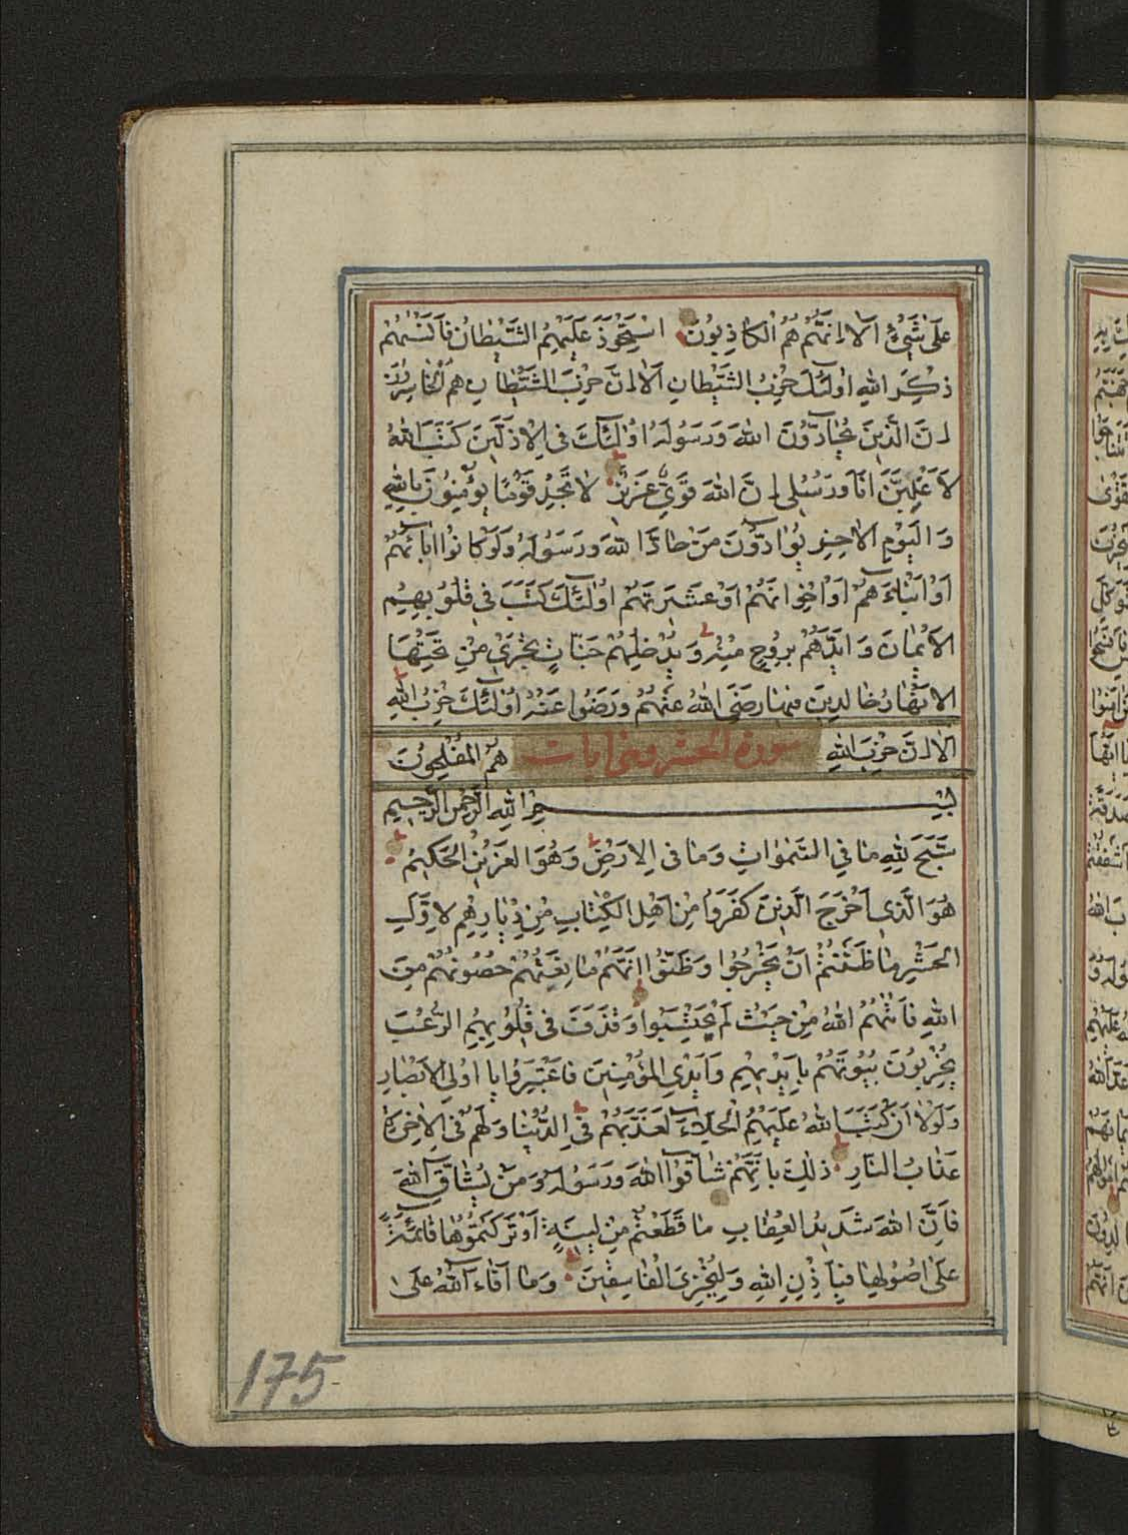 عَلٰى شَيْءٍ اَلَا اِنَّهُمْ هُمُ الْكَاذِبُونَ اِسْتَحْوَذَ عَلَيْهِمُ الشَّيْطَانُ فَاَنْسٰيهُمْ
ذِكْرَ اللهِ اُولٰئِكَ حِزْبُ الشَّيْطَانِ اَلَا اِنَّ حِزْبَ الشَّيْطَانِ هُمُ الْخَاسِرُونَ
اِنَّ الَّذِينَ يُحَادُّونَ اللهَ وَرَسُولَهُ اُولٰئِكَ فِى الْاَذَلِّينَ كَتَبَ اللهُ
لَاَغْلِبَنَّ اَنَا وَرُسُلِى اِنَّ اللهَ قَوِىٌّ عَزِيزٌ لَا تَجِدُ قَوْمًا يُؤْمِنُونَ بِاللهِ
وَالْيَوْمِ الْاٰخِرِ يُوَادُّونَ مَنْ حَادَّ اللهَ وَرَسُولَهُ وَلَوْ كَانُوا اٰبَائَهُمْ
اَوْ اَبْنَاءَهُمْ اَوْ اِخْوَانَهُمْ اَوْ عَشِيرَتَهُمْ اُولٰئِكَ كَتَبَ فِى قُلُوبِهِمُ
الْاِيمَانَ وَاَيَّدَهُمْ بِرُوحٍ مِنْهُ وَيُدْخِلُهُمْ جَنَّاتٍ تَجْرِى مِنْ تَحْتِهَا
الْاَنْهَارُ خَالِدِينَ فِيهَا رَضِىَ اللهُ عَنْهُمْ وَرَضُوا عَنْهُ اُولٰئِكَ حِزْبُ اللهِ
اَلَا اِنَّ حِزْبَ اللهِ هُمُ الْمُفْلِحُونَ
سورة الحشر
بِسْمِ اللهِ الرَّحْمٰنِ الرَّحِيمِ
سَبَّحَ لِلّٰهِ مَا فِي السَّمٰوَاتِ وَمَا فِى الْاَرْضِ وَهُوَ الْعَزِيزُ الْحَكِيمُ
هُوَ الَّذِى اَخْرَجَ الَّذِينَ كَفَرُوا مِنْ اَهْلِ الْكِتَابِ مِنْ دِيَارِهِمْ لِاَوَّلِ
الْحَشْرِ مَا ظَنَنْتُمْ اَنْ يَخْرُجُوا وَظَنُّوا اَنَّهُمْ مَانِعَتُهُمْ حُصُونُهُمْ مِنَ
اللهِ فَاَتٰيهُمُ اللهُ مِنْ حَيْثُ لَمْ يَحْتَسِبُوا وَقَذَفَ فِى قُلُوبِهِمُ الرُّعْبَ
يُخْرِبُونَ بُيُوتَهُمْ بِاَيْدِيهِمْ وَاَيْدِى الْمُؤْمِنِينَ فَاعْتَبِرُوا يَا اُولِى الْاَبْصَارِ
وَلَوْلَا اَنْ كَتَبَ اللهُ عَلَيْهِمُ الْجَلَاءَ لَعَذَّبَهُمْ فِى الدُّنْيَا وَلَهُمْ فِى الْاٰخِرَةِ
عَذَابُ النَّارِ ذٰلِكَ بِاَنَّهُمْ شَاقُّوا اللهَ وَرَسُولَهُ وَمَنْ يُشَاقِّ اللهَ
فَاِنَّ اللهَ شَدِيدُ الْعِقَابِ مَا قَطَعْتُمْ مِنْ لِينَةٍ اَوْ تَرَكْتُمُوهَا قَائِمَةً
عَلٰى اُصُولِهَا فَبِاِذْنِ اللهِ وَلِيُخْزِىَ الْفَاسِقِينَ وَمَا اَفَاءَ اللهُ عَلٰى
175